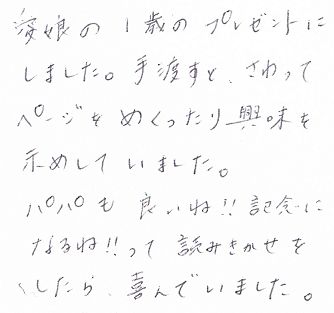 愛娘の1歳のプレゼントに
しました。手渡すと、さわって
ページをめくったり興味を
示めしていました。
パパも良いね!!記念に
なるね!!って読みきかせを
したら、喜んでいました。